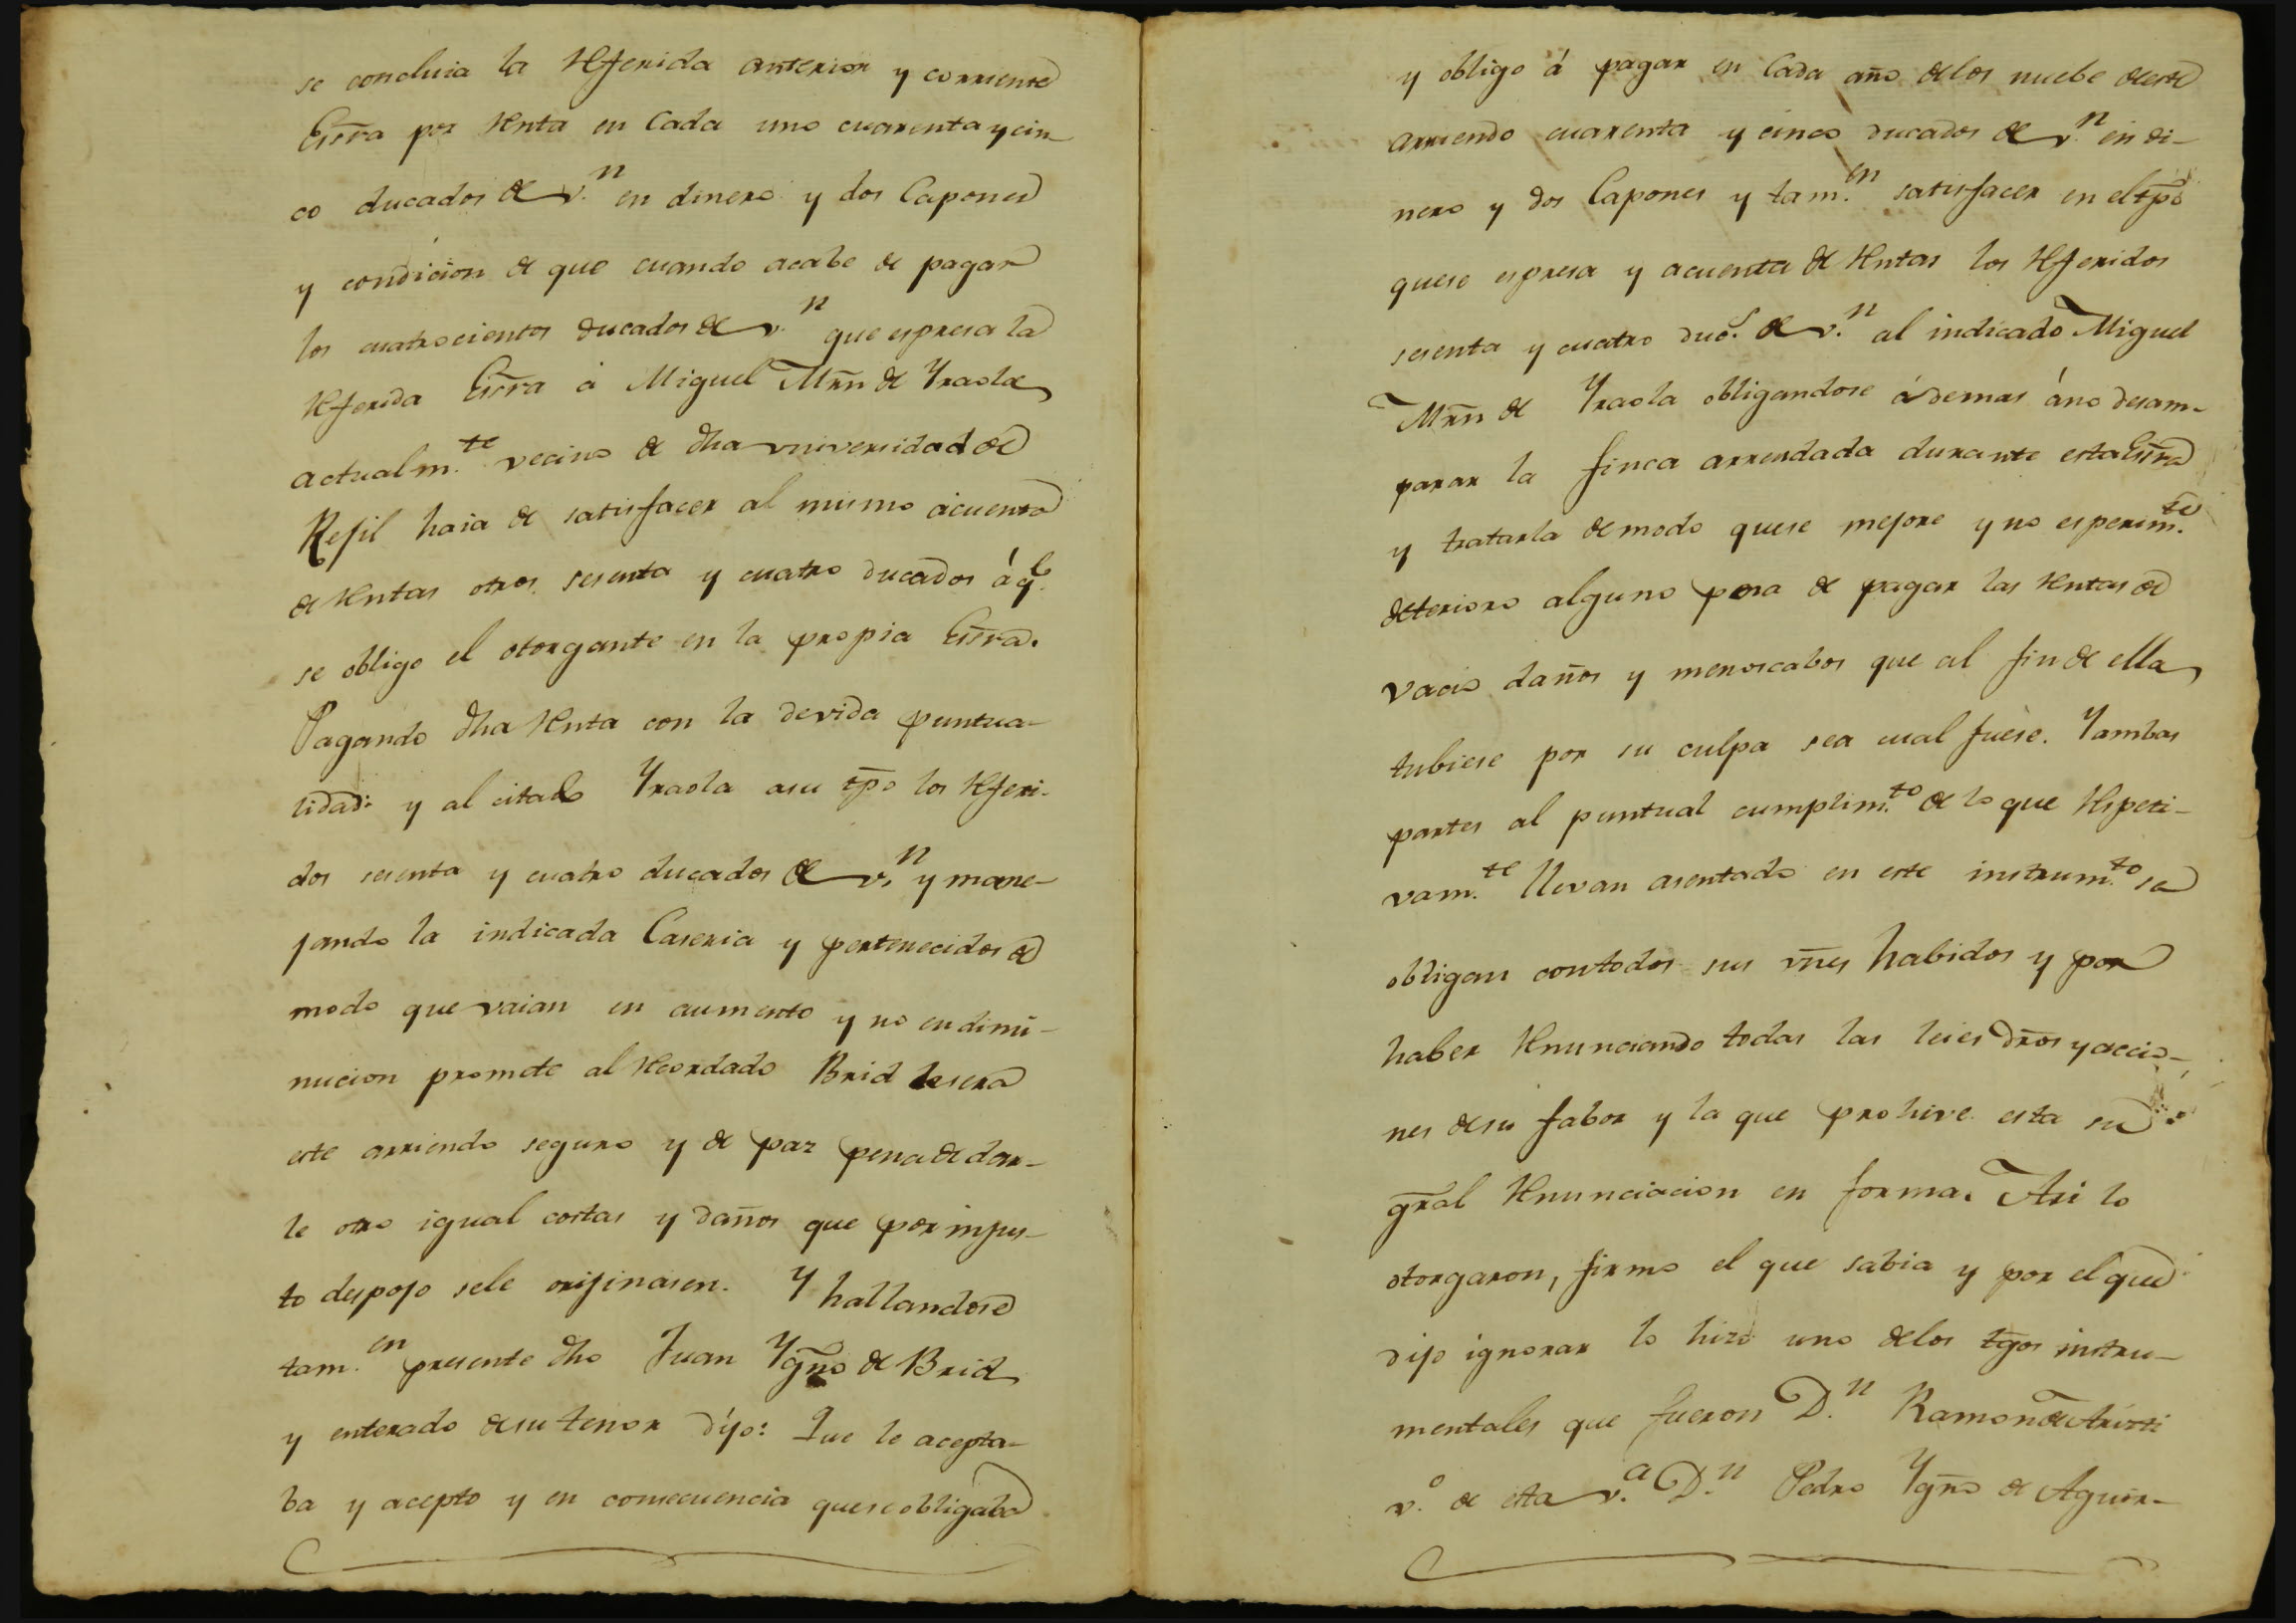 se concluia la Referida anterior y corriente
Esc̃ra por Renta en Cada uno cuarenta y cin-
co ducados de v.n en dinero y dos Capones
y condicion de que cuando acabe de pagar
los cuatrocientos ducados de v.n que espresa la
Referida Esc̃ra á Miguel Mr̃n de Yraola
actualm.te vecino de dha vniversidad de
Resil haia de satisfacer al mismo ácuenta
de Rentas otros sesenta y cuatro ducados á q.e
se obligo el otorgante en la propia Esc̃ra.
Pagando dha Renta con la devida puntua-
lidad: y al citado Yraola asu tp̃o los Referi-
dos sesenta y cuatro ducados de v.n y mane-
jando la indicada Caseria y pertenecidos de
modo que vaian en aumento y no en dimi-
nucion promete al Recordado Brid le sera
este arriendo seguro y de paz pena de dar-
le otro igual costas y daños que por injus-
to despojo sele orijinasen. Y hallandose
tam.en presente dho Juan Ygñо de Brid
y enterado de su tenor dijo: Que le acepta-
ba y acepto y en consecuencia que se obligaba
y obligo á pagar en Cada año delos nuebe de este
arriendo cuarenta y cinco ducados de v.n en di-
nero y dos Capones y tam.en satisfacer en el tp̃o
quese espresa y acuenta de Rentas los Referidos
sesenta y cuatro duc.s de v.n al indicado Miguel
Mr̃n de Yraola obligandose ádemas áno desam-
parar la finca arrendada durante esta Esc̃ra
y tratarla de modo quese mejore y no esperim.te
deterioro alguno pena de pagar las Rentas de
vacio daños y menoscabos que al fin de ella
tubiese por su culpa sea cual fuese. Y ambas
partes al puntual cumplim.to de lo que Respeti-
vam.te llevan asentado en este instrum.to se
obligan con todos sus vñes habidos y por
haber Renunciando todas las leies dr̃os y accio-
nes de su fabor y la que prohive esta su
gr̃al Renunciacion en forma. Asi lo
otorgaron, firmo el que sabia y por el que
dijo ignorar lo hizo uno delos tg̃os instru-
mentales que fueron D.n Ramon de Aristi
v.o de esta v.a D.n Pedro Ygñо de Aguir-